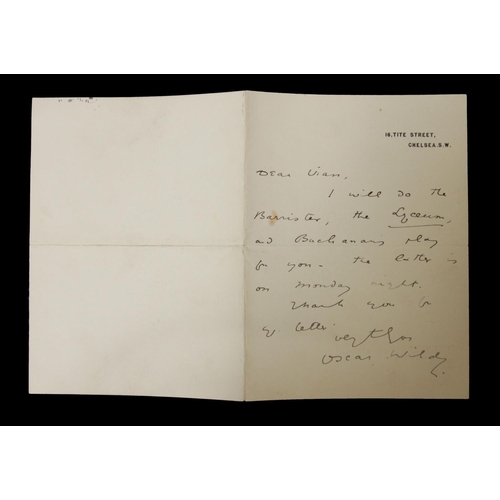 16, TITE STREET,
CHELSEA. S.W.
Dear Vian,
I will do the
Barrister, the Lyceum,
and Buchanan's play
for you – the latter is
on Monday night.
Thank you for
yr letter
Oscar Wilde